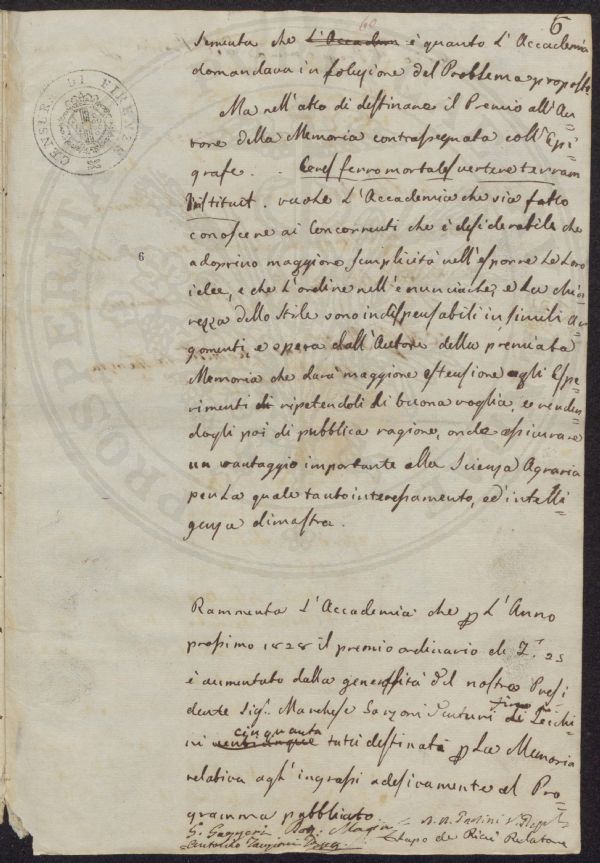 6
60
sementa che L'Accadem è quanto L'Accademia
domandava in soluzione del Problema proposto.
Ma nell'atto di destinare il Premio all'Au=
tore della Memoria contrassegnata coll'Epi=
grafe. . Ceres ferro mortales vertere terram
Instituit. vuole L'Accademia che sia fatto
conoscere ai Concorrenti che è desiderabile che
adoprino maggiore semplicità nell'esporre Le Loro
idee, e che L'ordine nell'enunciarle, e La chia=
rezza dello Stile sono indispensabili in simili Ar=
gomenti, e spera dall'Autore della premiata
Memoria che darà maggiore estensione agli Espe=
rimenti di ripetendoli di buona voglia, e renden=
dogli poi di pubblica ragione, onde assicurare
un vantaggio importante alla Scienza Agraria
per La quale tanto interessamento, ed intelli=
genza dimostra.
Rammenta L'Accademia che p L'Anno
prossimo 1828 il premio ordinario di Z. 25
è aumentato dalla generosità del nostro Presi
dente Sig. Marchese Garzoni Venturi fino a Zecchi=
ni cinquanta venticinque tutti destinati p La Memoria
relativa agl'ingrassi adesivamente al Pro=
gramma pubblicato.
G. Gazzeri
Antonio Targioni Tozzetti
Lapo de Ricci Relatore
CENSURA DI FIRENZE
6
PROSPERITÀ